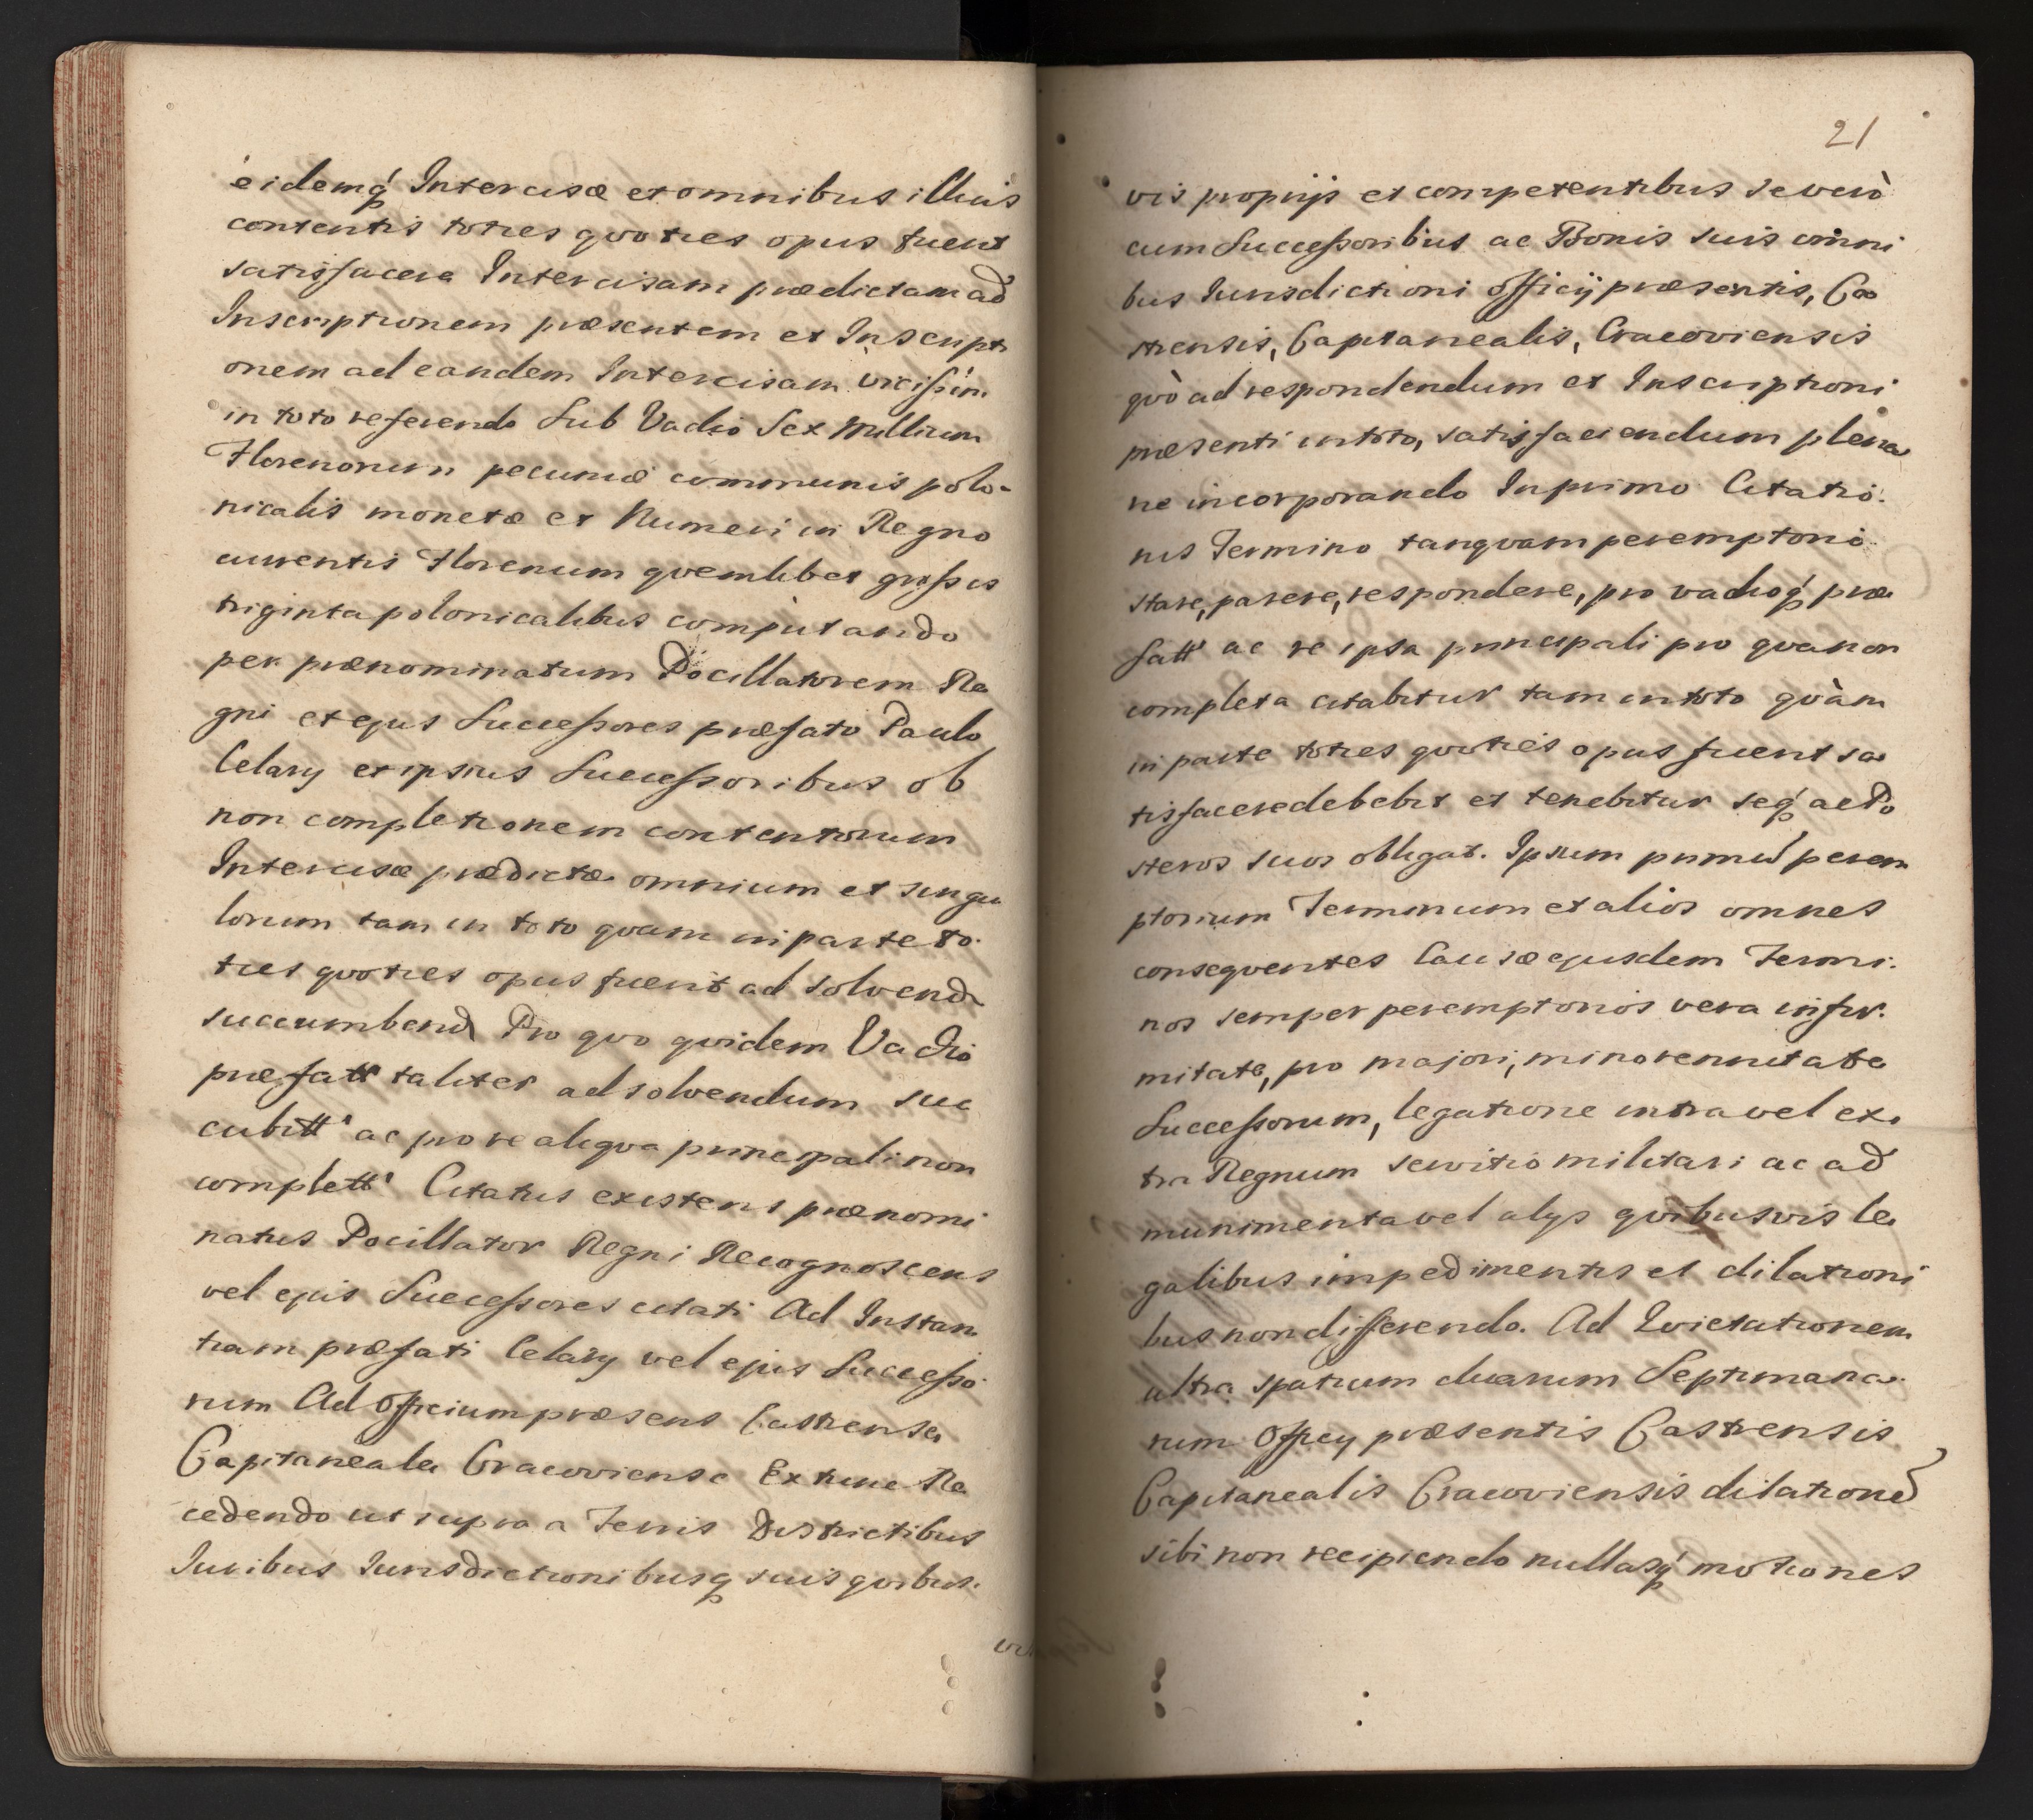 eidemq́ Intercisæ et omnibus illius
contentis toties qvoties opus fuerit
satisfacere Intercisam prædictam ad
Inscriptionem præsentem et Inscripti
onem ad eandem Intercisam vicissim
in toto referendo Sub Vadio Sex Millium
Florenorum pecuniæ communis polo-
nicalis monetæ et Numeri in Regno
currentis Florenum qvemlibet grossis
triginta polonicalibus computando
per prænominatum Pocillatorem Re
gni et ejus Successores præfato Paulo
Celary et ipsius Successoribus ob
non completionem contentorum
Intercisæ prædictæ omnium et singu
lorum tam in toto qvam in parte to-
ties qvoties opus fuerit ad solvend
succumbend Pro qvo qvidem Vadio
præfatt taliter ad solvendum suc
cubitt ac pro re aliqva principali non
complett Citatus existens prænomi
natus Pocillator Regni Recognoscens
vel ejus Successores citati Ad Instan
tiam præfati Celary vel ejus Successo-
rum Ad Officium præsens Castrense
Capitaneale Cracoviense Ex tunc Re
cedendo ut supra a Terris Districtibus
Juribus Jurisdictionibusq suis qvibus-
21
vis proprijs et competentibus se verò
cum Successoribus ac Bonis suis omni
bus Jurisdictioni officij præsentis, Ca
strensis, Capitanealis, Cracoviensis
qvò ad respondendum et Inscriptioni
præsenti in toto, satisfaciendum plena
ne incorporando In primo Citatio-
nis Termino tanqvam peremptorio
stare, parere, respondere, pro vadioq́ præ
fatt ac re ipsa principali pro qva non
completa citabitur tam in toto qvàm
in parte toties qvoties opus fuerit sa
tisfacere debebit et tenebitur seq́ ac Po
steros suos obligat. Ipsum primũ perem
ptorium Terminum et alios omnes
conseqventes Causæ ejusdem Termi-
nos semper peremptorios vera infir-
mitate, pro majori, minorennitate
Successorum, legatione intra vel ex
tra Regnum servitio militari ac ad
munimenta vel alys qvibusvis le
galibus impedimentis et dilationi
bus non differendo. Ad Evictationem
ultra spatium duarum Septimana-
rum Officy præsentis Castrensis
Capitanealis Cracoviensis dilationẽ
sibi non recipiendo nullasq́ motiones